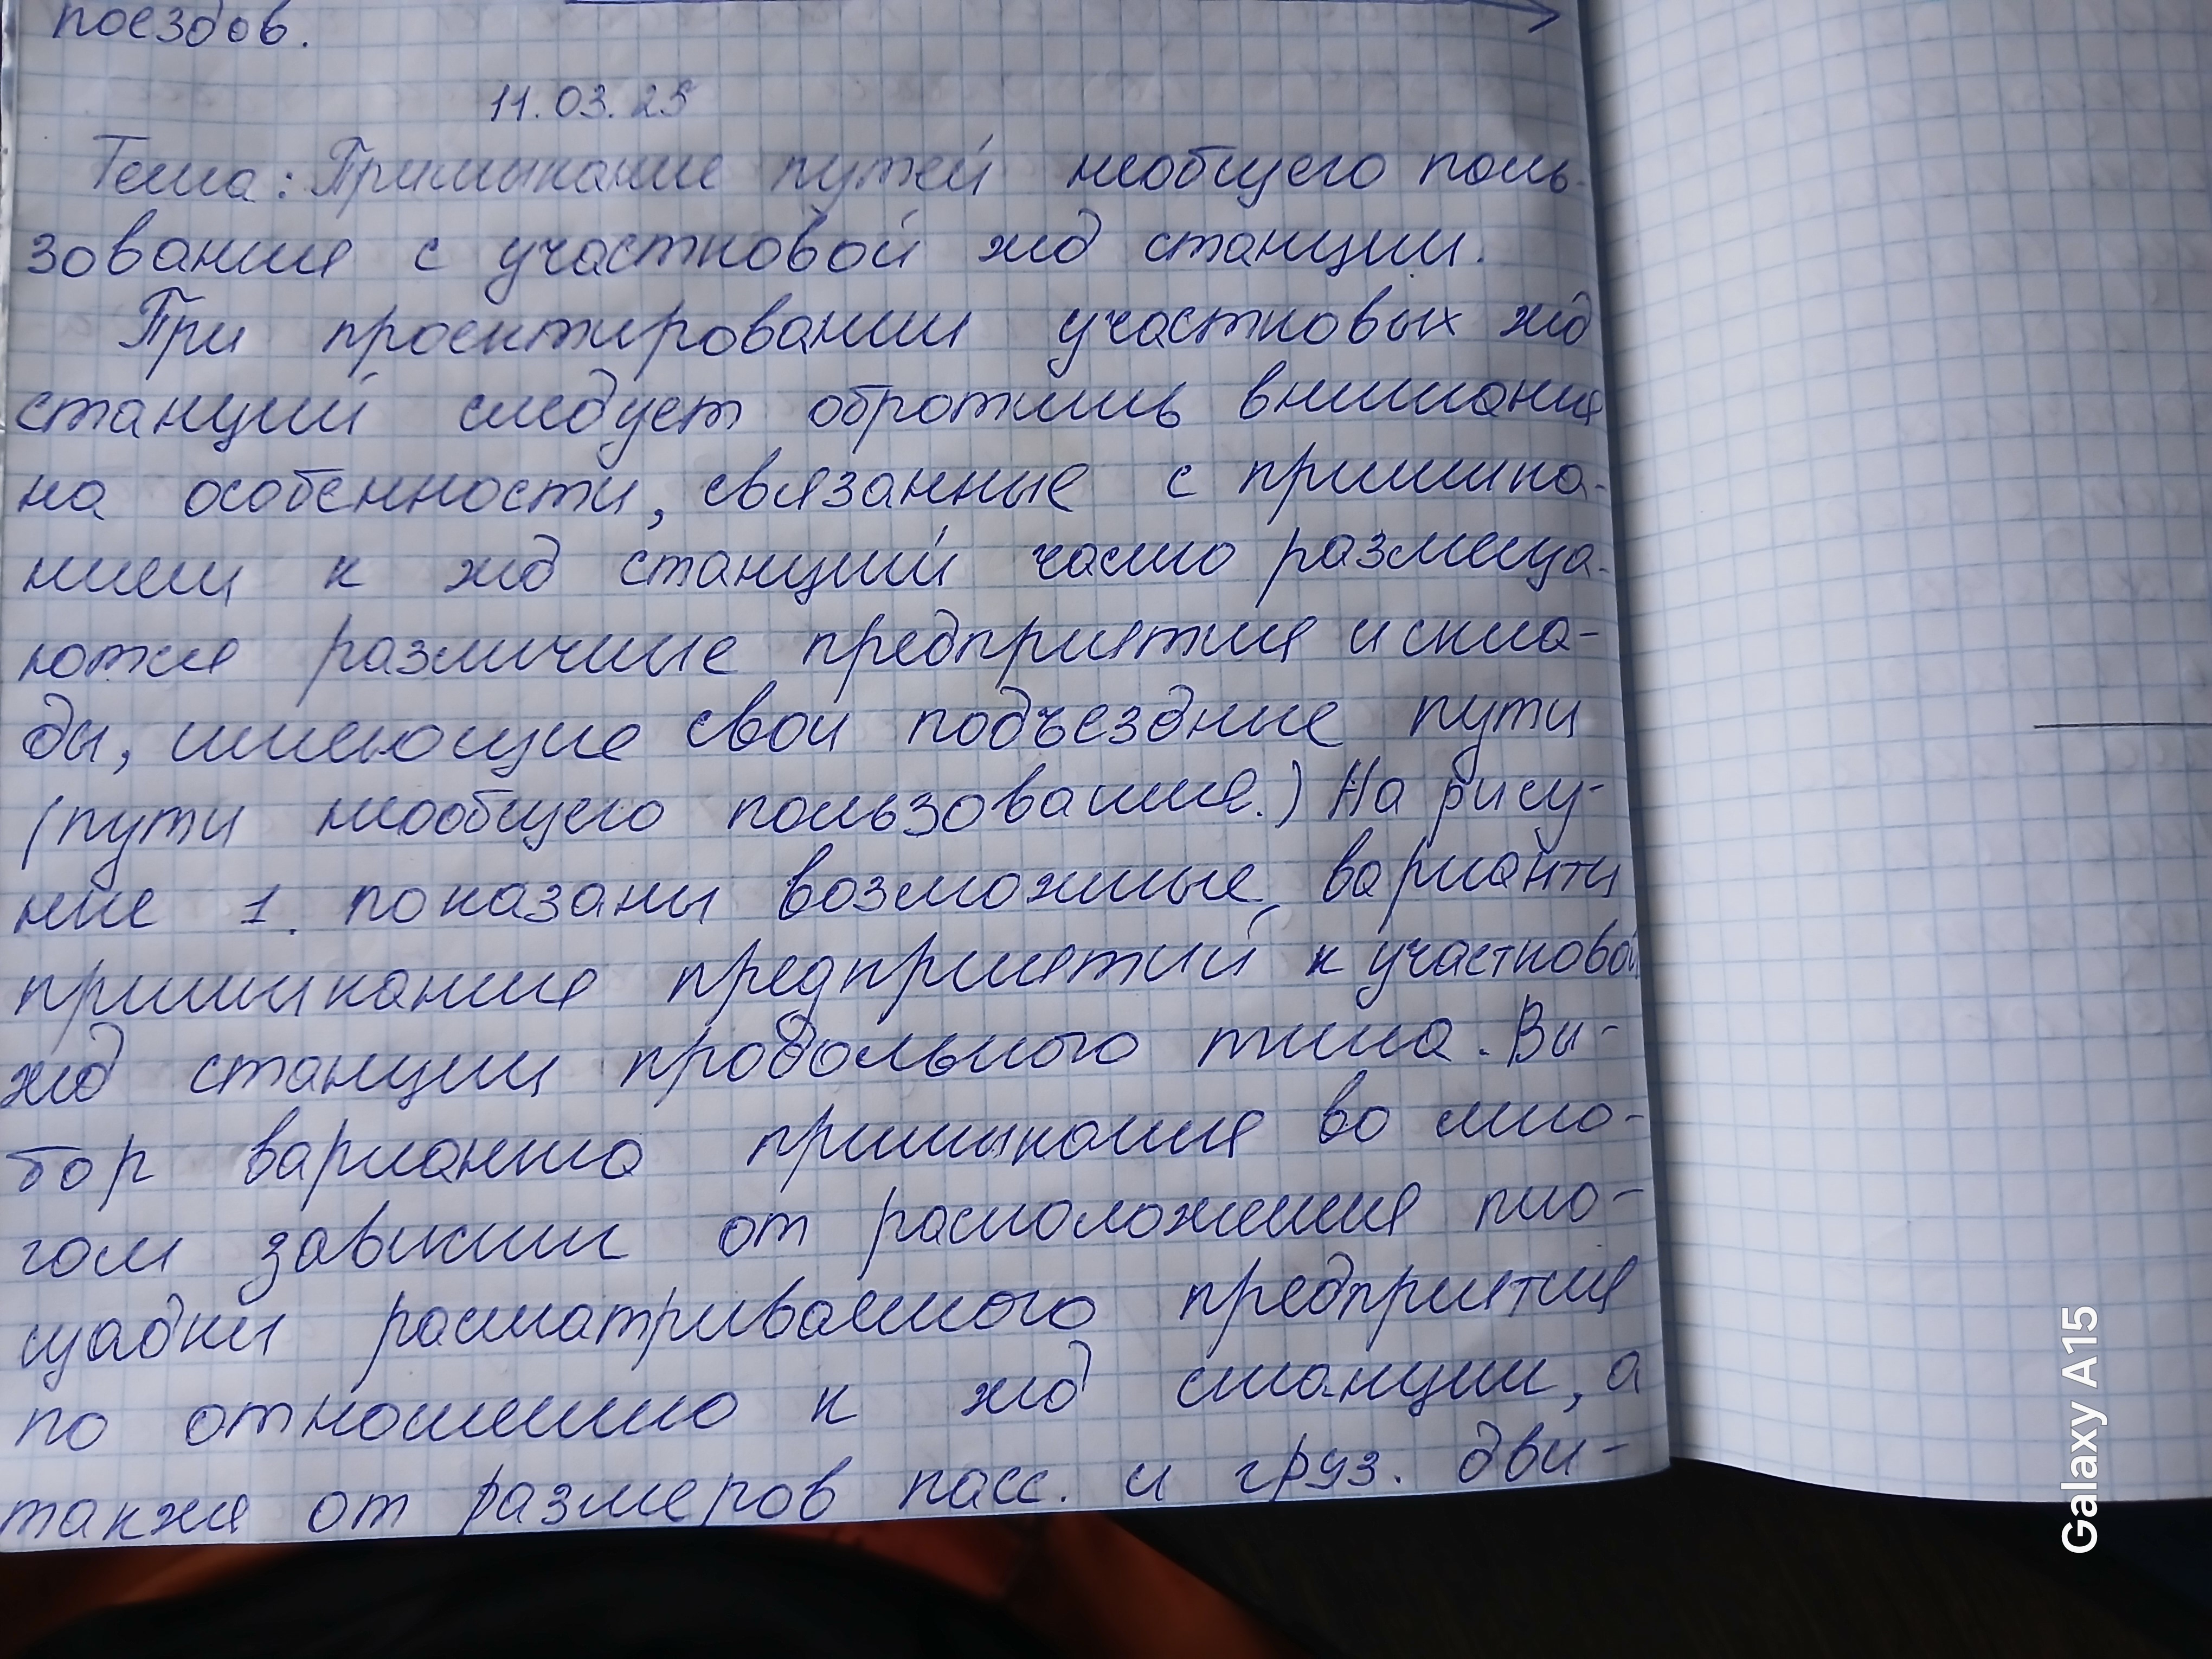 поездов.
11.03.25
Тема: Примыкание путей необщего поль-
зования с участковой жд станции.
При проектировании участковых жд
станций следует обротить внимания
на особенности, связанные с примыка-
нием к жд станций часто размеща-
ются различные предприятия и скла-
ды, имеющие свои подъездные пути
(пути необщего пользования.) На рису-
нке 1. показаны возможные варианты
примыкания предприятий к участковой
жд станции продольного типа. Вы-
бор варианта примыкания во мно-
гом зависит от расположения пло-
щадки расматриваемого предприятия
по отношению к жд станции, а
также от размеров пасс. и груз. дви-
Galaxy A15